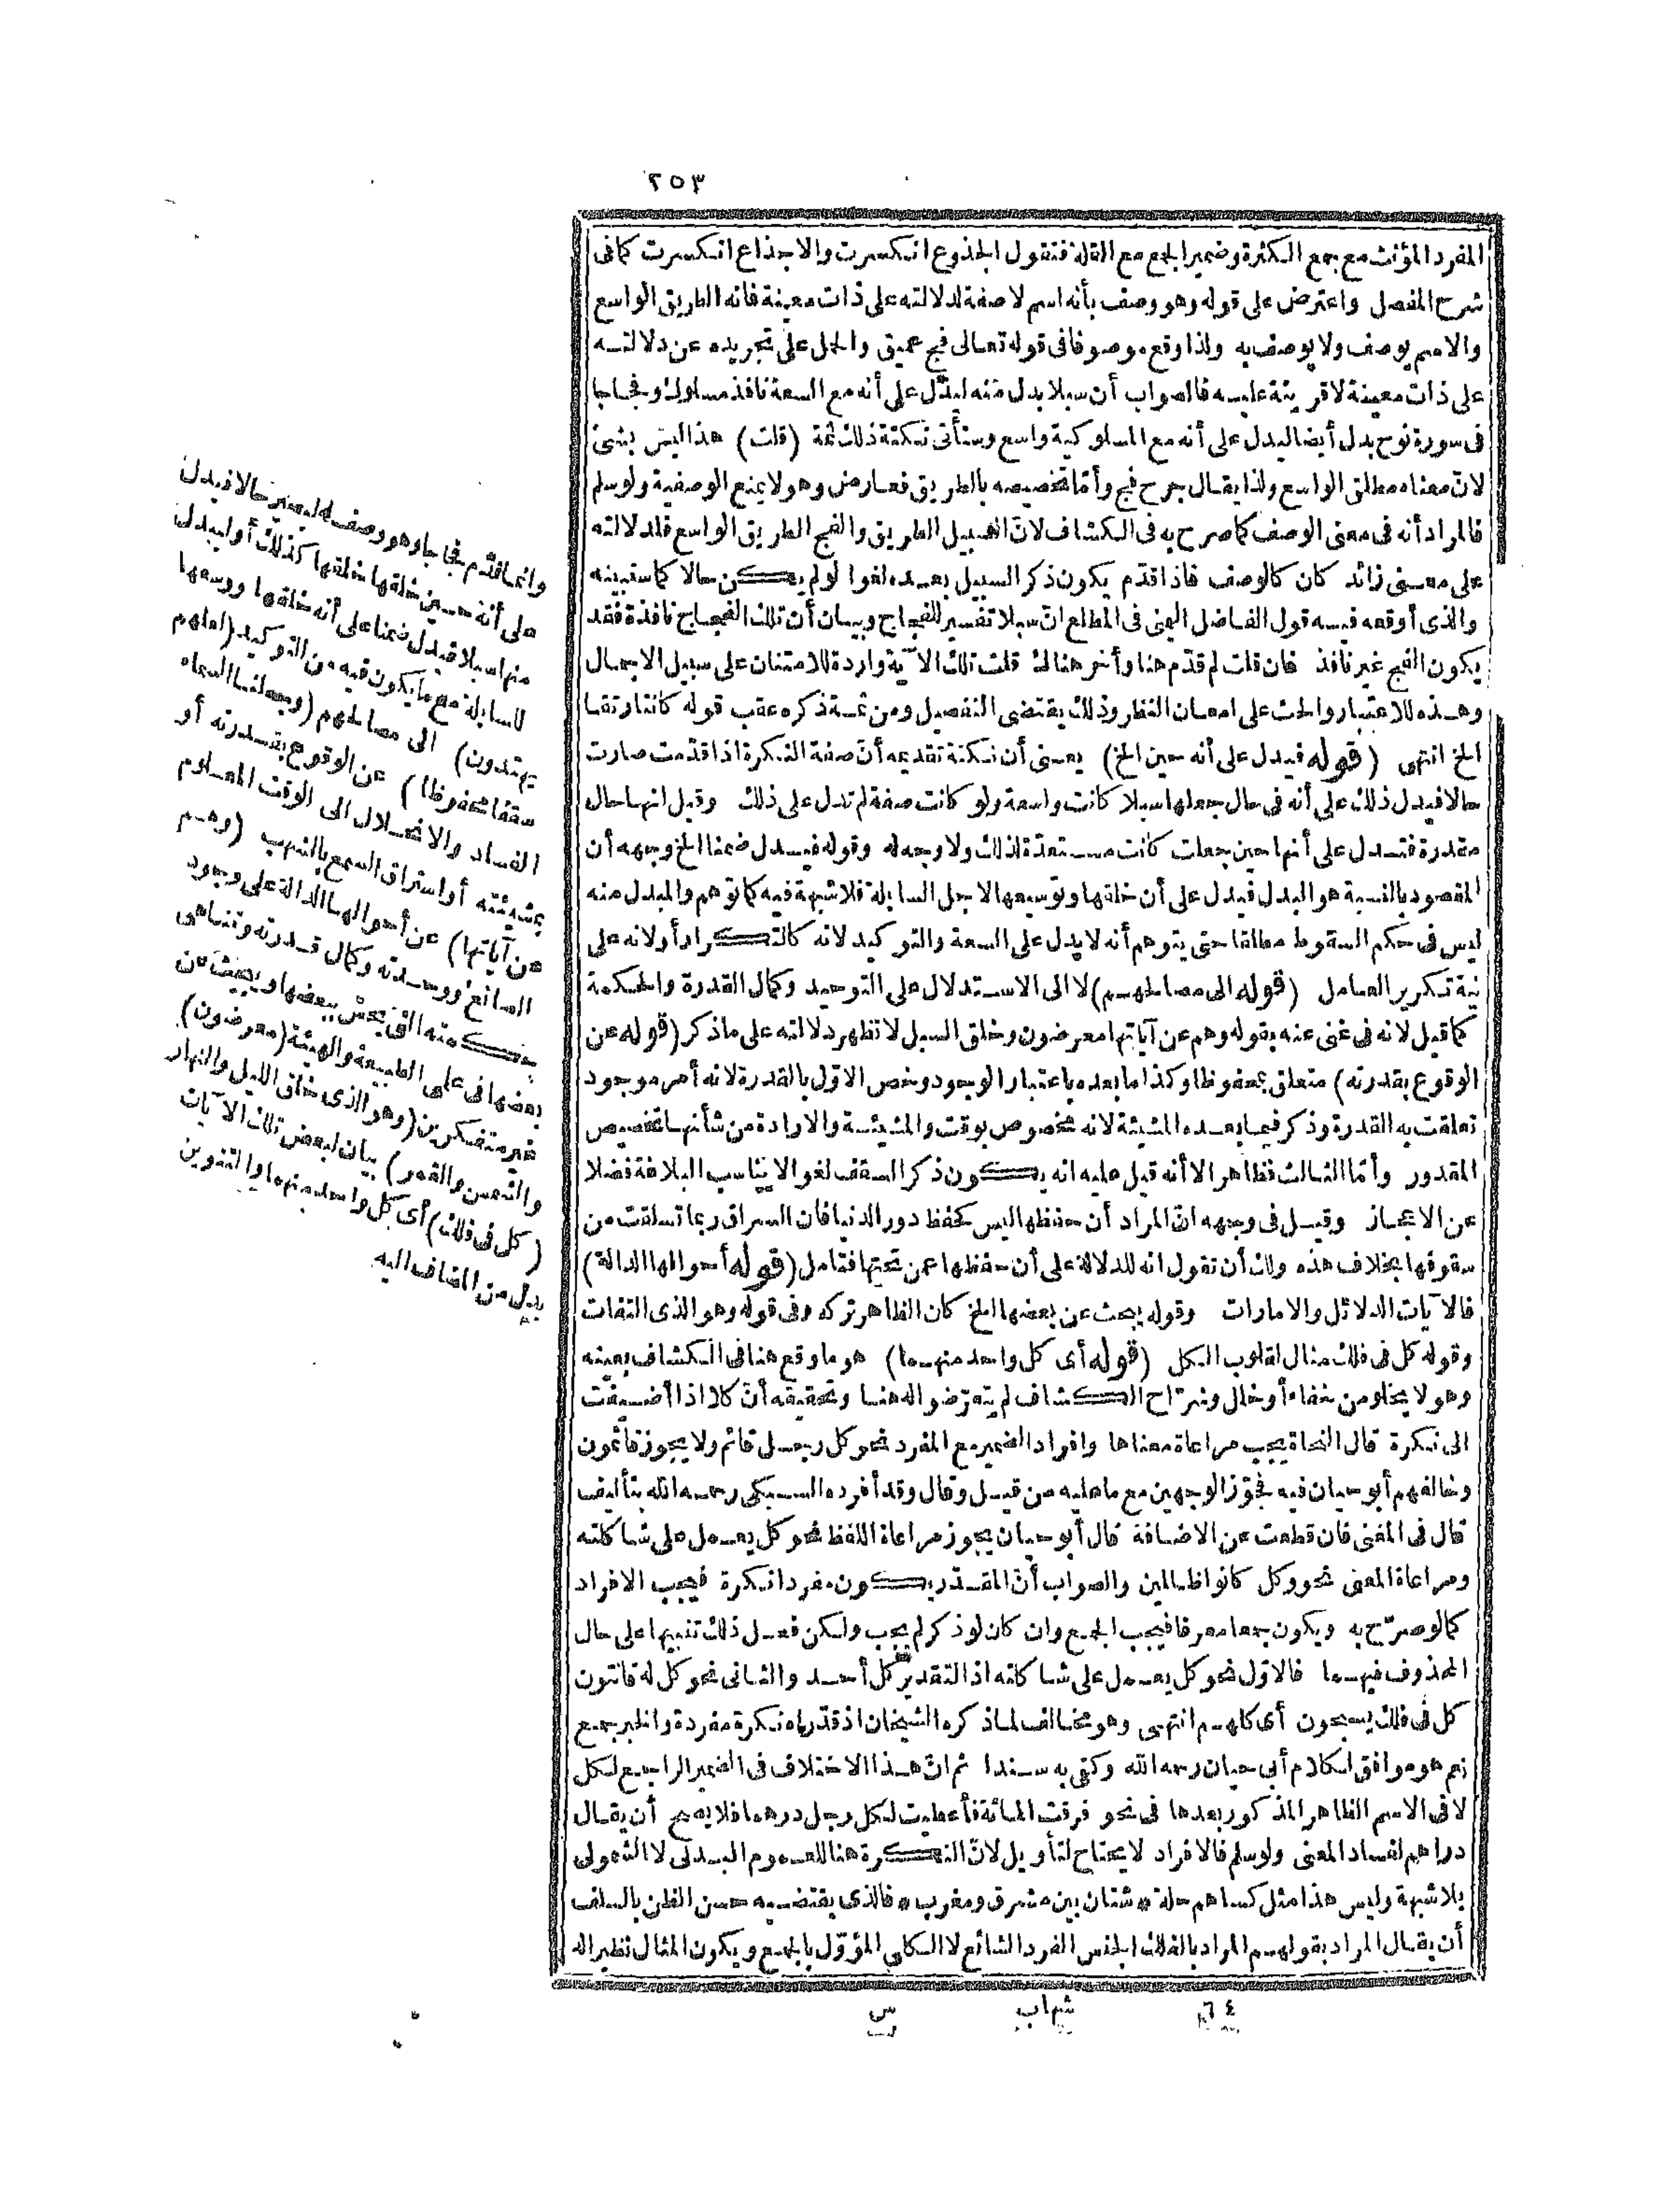 ٢٥٣
المفرد المؤنث مع جمع الكثرة وضمير الجمع مع القلة فتقول الجذوع انكسرت والاجذاع انكسرت كما فى
شرح المفصل واعترض على قوله وهو وصف بأنه اسم لا صفة لدلالته على ذات معينة فانه الطريق الواسع
والاسم يوصف ولا يوصف به ولذا وقع موصوفا فى قوله تعالى فج عميق والحمل على تجريده عن دلالتسه
على ذات معينة لا قرينة عليه فالصواب أن سبلا بدل منه ليدل على أنه مع السعة نافذ مسلوك وفجاجا
فى سورة نوح بدل أيضا ليدل على أنه مع المسلوكية واسع وستأتى نكتة ذلك ثمة (قلت) هذا ليس بشئ
لان معناه مطلق الواسع ولذا يقال جرح فج وأما تخصيصه بالطريق فعارض وهو لا يمنع الوصفية ولو سلم
فالمراد أنه فى معنى الوصف كما صرح به فى الكشاف لان السبيل الطريق والفج الطريق الواسع فلدلالته
على معنى زائد كان كالوصف فاذا قدم يكون ذكر السبيل بعده لغوا لو لم يكن حالا كما ستبينه
والذى أوقعه فيه قول الفاضل اليمنى فى المطلع ان سبلا تفسير للفجاج وبيان أن تلك الفجاج نافذة فقد
يكون الفج غير نافذ فان قلت لم قدم هنا وأخر هنالك قلت تلك الآية واردة للامتنان على سبيل الاجمال
وهذه للاعتبار والحث على امعان النظر وذلك يقتضى التفصيل ومن ثمة ذكره عقب قوله كانتا رتقا
الخ انتهى (قوله فيدل على أنه حين الخ) يعنى أن نكتة تقديمه أن صفة النكرة اذا قدمت صارت
حالا فيدل ذلك على أنه فى حال جعلها سبلا كانت واسعة ولو كانت صفة لم تدل على ذلك وقيل انها حال
مقدرة فتدل على أنها حين جعلت كانت مستعدة لذلك ولا وجه له وقوله فيدل ضمنا الخ وجهه أن
المقصود بالنسبة هو البدل فيدل على أن خلقها وتوسيعها لاجل السابلة فلا شبهة فيه كما توهم والمبدل منه
ليس فى حكم السقوط مطلقا حتى يتوهم أنه لا يدل على السعة والتوكيد لانه كالتكرار أو لانه على
نية تكرير العامل (قوله الى مصالحهم) لا الى الاستدلال على التوحيد وكمال القدرة والحكمة
كما قيل لانه فى غنى عنه بقوله وهم عن آياتها معرضون وخلق السبل لا تظهر دلالته على ماذكر (قوله عن
الوقوع بقدرته) متعلق بمحفوظا وكذا ما بعده باعتبار الوجود وخص الاول بالقدرة لانه أمر موجود
تعلقت به القدرة وذكر فيما بعده المشيئة لانه مخصوص بوقت والمشيئة والارادة من شأنها تخصيص
المقدور وأما الثالث فظاهر الا أنه قيل عليه انه يكون ذكر السقف لغوا لا يناسب البلاغة فضلا
عن الاعجاز وقيل فى وجهه ان المراد أن حفظها ليس كحفظ دور الدنيا فان السراق ربما تسلقت من
سقوفها بخلاف هذه ولك أن تقول انه للدلالة على أن حفظها عمن تحتها فتامل (قوله أحوالها الدالة)
فالآيات الدلائل والامارات وقوله يبحث عن بعضها الخ كان الظاهر تركه وفى قوله وهو الذى التفات
وقوله كل فى فلك مثال لقلوب الكل (قوله أى كل واحد منهما) هو ما وقع هنا فى الكشاف بعينه
وهو لا يخلو من خفاء أو خلل وشراح الكشاف لم يتعرضوا له هنا وتحقيقه أن كلا اذا أضيفت
الى نكرة قال النحاة يجب مراعاة معناها وافراد الضمير مع المفرد نحو كل رجل قائم ولا يجوز قائمون
وخالفهم أبو حيان فيه فجوز الوجهين مع ما عليه من قيل وقال وقد أفرده السبكى رحمه الله بتأليف
قال فى المغنى فان قطعت عن الاضافة قال أبو حيان يجوز مراعاة اللفظ نحو كل يعمل على شاكلته
ومراعاة المعنى نحو وكل كانوا ظالمين والصواب أن المقدر يكون مفردا نكرة فيجب الافراد
كما لو صرح به ويكون جمعا معرفا فيجب الجمع وان كان لو ذكر لم يجب ولكن فعل ذلك تنبيها على حال
المحذوف فيهما فالاول نحو كل يعمل على شاكلته اذ التقدير كل أحد والثانى نحو كل له قانتون
كل فى فلك يسبحون أى كلهم انتهى وهو مخالف لما ذكره الشيخان اذ قدراه نكرة مفردة والخبر جمع
نعم هو موافق لكلام أبى حيان رحمه الله وكفى به سندا ثم ان هذا الاختلاف فى الضمير الراجع لكل
لا فى الاسم الظاهر المذكور بعدها فى نحو فرقت المائة فأعطيت لكل رجل درهما فلا يصح أن يقال
دراهم لفساد المعنى ولو سلم فالافراد لا يحتاج لتأويل لان النكرة هنا للعموم البدلى لا الشمولى
بلا شبهة وليس هذا مثل كساهم حلة * شتان بين مشرق ومغرب * فالذى يقتضيه حسن الظن بالسلف
أن يقال المراد بقولهم المراد بالفلك الجنس الفرد الشائع لا الكلى المؤول بالجمع ويكون المثال نظير اله
وانما قدم فجاجا وهو وصف له ليصير حالا فيدل
على أنه حين خلقها خلقها كذلك أو ليبدل
منها سبلا فيدل ضمنا على أنه خلقها ووسعها
للسابلة مع ما يكون فيه من التوكيد (لعلهم
يهتدون) الى مصالحهم (وجعلنا السماء
سقفا محفوظا) عن الوقوع بقدرته أو
الفساد والانحلال الى الوقت المعلوم
بمشيئته أو استراق السمع بالشهب (وهم
عن آياتها) عن أحوالها الدالة على وجود
الصانع ووحدته وكمال قدرته وتناهى
حكمته التى يحس ببعضها ويبحث عن
بعضها فى علمى الطبيعة والهيئة (معرضون)
غير متفكرين (وهو الذى خلق الليل والنهار
والشمس والقمر) بيان لبعض تلك الآيات
(كل فى فلك) أى كل واحد منهما والتنوين
بدل من المضاف اليه
٦٤ شهاب س